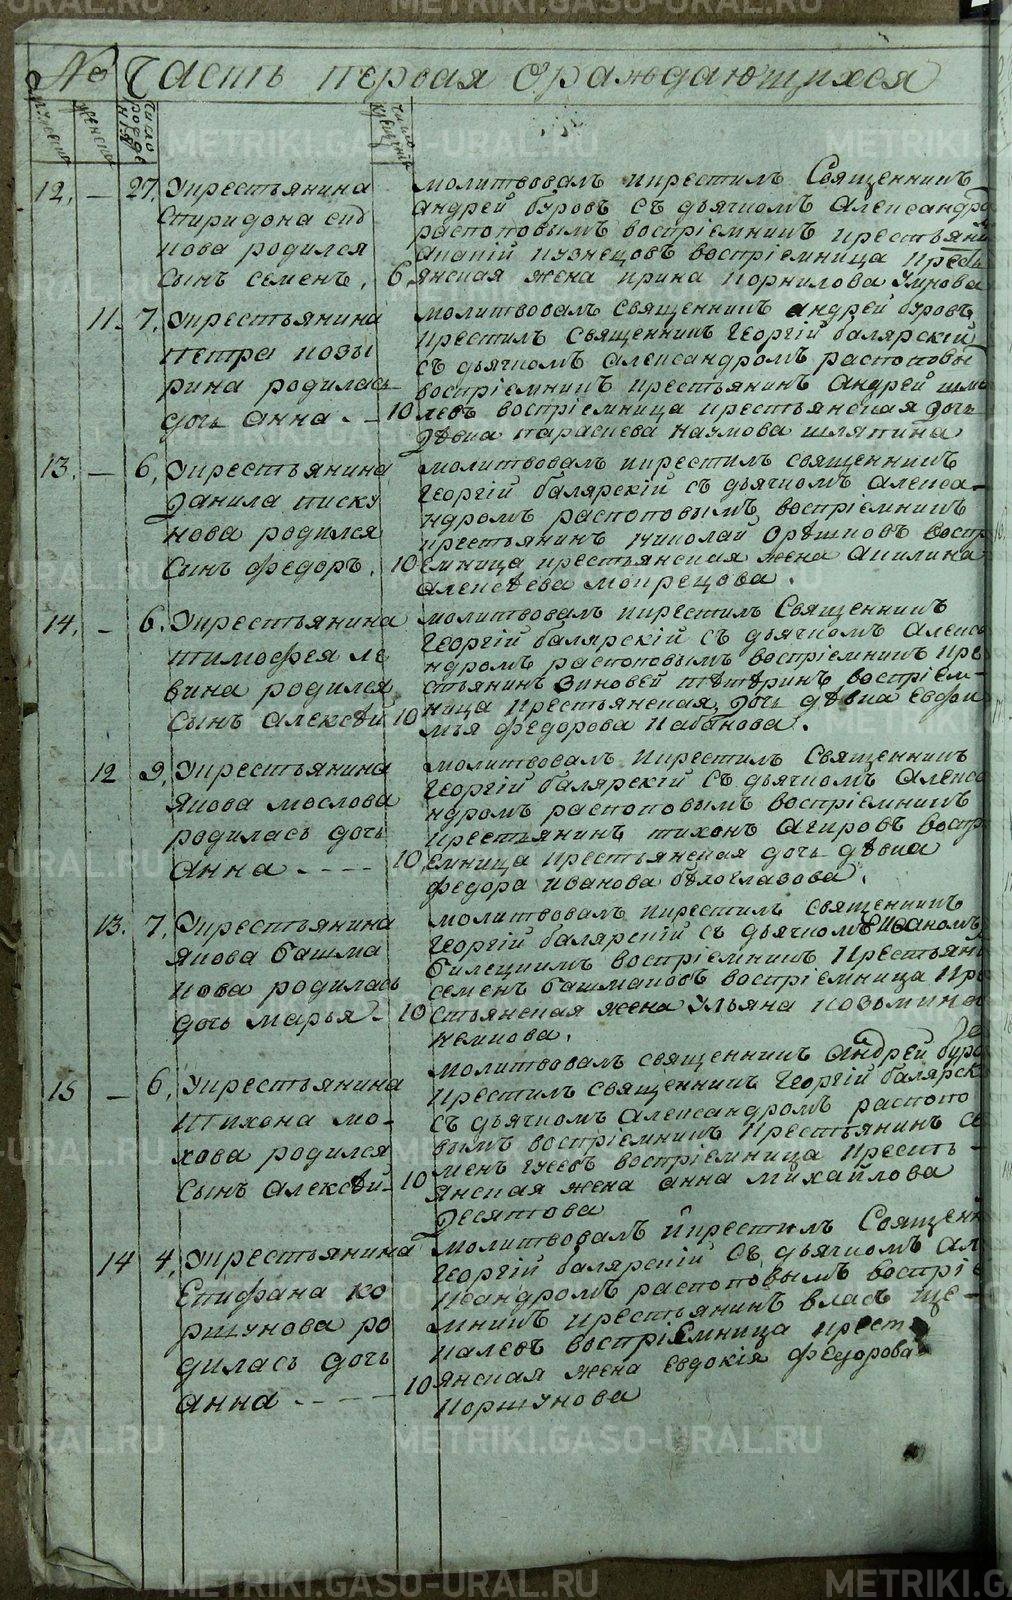 METRIKI.GASO-URAL.RU
№ Часть первая ораждающихся
мужеска
женска
число рожде ния
число крещенiя
12. — 27. Укрестьянина
Спиридона
кова родился
сынъ семенъ. 6.
молитвовалъ икрестилъ Священникъ
андрей буровъ съ дьячкомъ Александро
распоповымъ воспрiемникъ крестьяни
кузнецовъ воспрiемница кресть
янская жена ирина корнилова
11. 7. Укрестьянина
петра козы
рина родилась
дочь анна. — 10
молитвовалъ священникъ андрей буровъ
крестилъ священникъ Георгiй балярскiй
съ дьячкомъ александромъ распоповы
воспрiемникъ крестьянинъ андрей шма
левъ воспрiемница крестьянская дочь
дѣвка параскева наумова шляпина
13. — 6. Укрестьянина
Данила писку
нова родился
сынъ федоръ. 10
молитвовалъ икрестилъ священникъ
Георгiй балярскiй съ дьячкомъ алекса-
ндромъ распоповымъ воспрiемникъ
крестьянинъ николай орѣшковъ воспр
емница крестьянская жена акилина
алексѣева мокрецова.
14. — 6. Укрестьянина
тимофея ле
вина родился
сынъ алексѣй 10
молитвовалъ икрестилъ Священникъ
Георгiй балярскiй съ дьячкомъ алекса
ндромъ распоповымъ воспрiемникъ кре
стьянинъ Зиновей тѣтѣринъ воспрiем-
ница крестьянская дочь дѣвка евфи
мья федорова кабакова.
12 9. Укрестьянина
якова мослова
родилась дочь
анна - - - - 10
молитвовалъ икрестилъ Священникъ
Георгiй балярскiй съ дьячкомъ алекса
ндромъ распоповымъ воспрiемникъ
крестьянинъ тихонъ агировъ воспрi
емница крестьянская дочь дѣвка
федора иванова бѣлоглазова.
13. 7. Укрестьянина
якова башма
кова родилась
дочь марья - 10
молитвовалъ икрестилъ священникъ
Георгiй балярскiй съ дьячкомъ иваномъ
билецкимъ воспрiемникъ крестьяни
семенъ башмаковъ воспрiемница кре
стьянская жена ульяна козьмина
немкова.
15 — 6. Укрестьянина
тихона мо-
хова родился
сынъ алексѣй — 10
молитвовалъ священникъ андрей буро
крестилъ священникъ Георгiй балярск
съ дьячкомъ александромъ распопо
вымъ воспрiемникъ крестьянинъ се
менъ гусевъ воспрiемница кресть-
янская жена анна михайлова
десятова
14 4. Укрестьянина
Епифана ко
ршунова ро
дилась дочь
анна - - - — 10
молитвовалъ икрестилъ Священни
Георгiй балярскiй съ дьячкомъ ал
ксандромъ распоповымъ воспрiе
мникъ крестьянинъ власъ ще-
калевъ воспрiемница крест
янская жена евдокiя федорова
коршунова